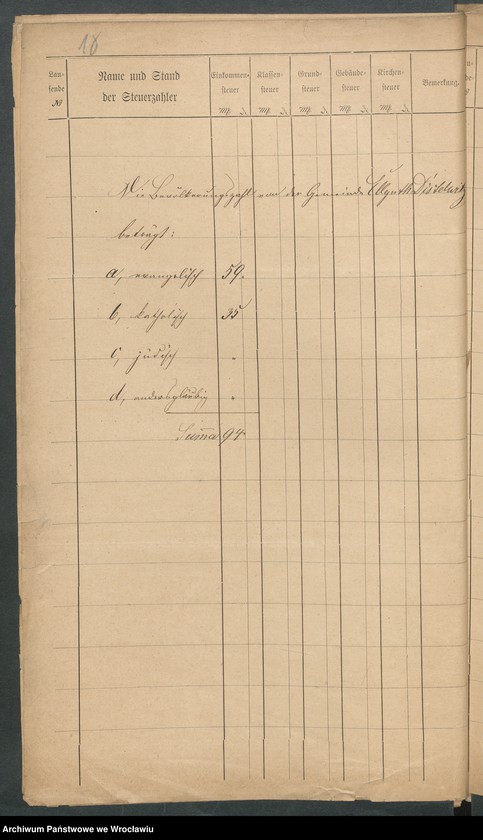 18
Laufende №
Name und Stand der Steuerzahler
Einkommensteuer
Klassensteuer
Grundsteuer
Gebäudesteuer
Kirchensteuer
Bemerkung.
Die Bevölkerungszahl von der Gemeinde Ellguth Distelwitz
beträgt:
a, evangelisch 59.
b, katholisch 35
c, jüdisch "
d, andersgläubig "
Summa 94
Archiwum Państwowe we Wrocławiu